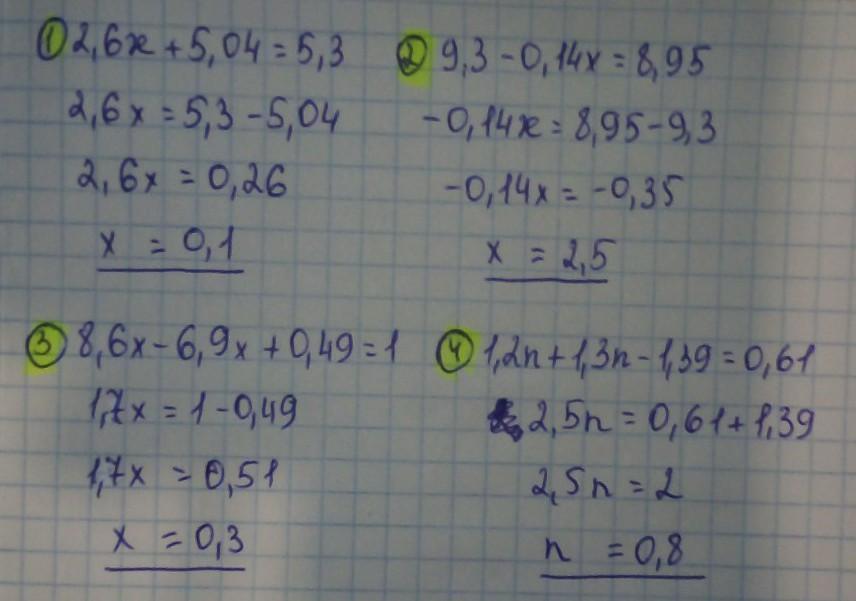 ① 2,6x + 5,04 = 5,3
2,6x = 5,3 - 5,04
2,6x = 0,26
x = 0,1
② 9,3 - 0,14x = 8,95
-0,14x = 8,95 - 9,3
-0,14x = -0,35
x = 2,5
③ 8,6x - 6,9x + 0,49 = 1
1,7x = 1 - 0,49
1,7x = 0,51
x = 0,3
④ 1,2n + 1,3n - 1,39 = 0,61
2,5n = 0,61 + 1,39
2,5n = 2
n = 0,8